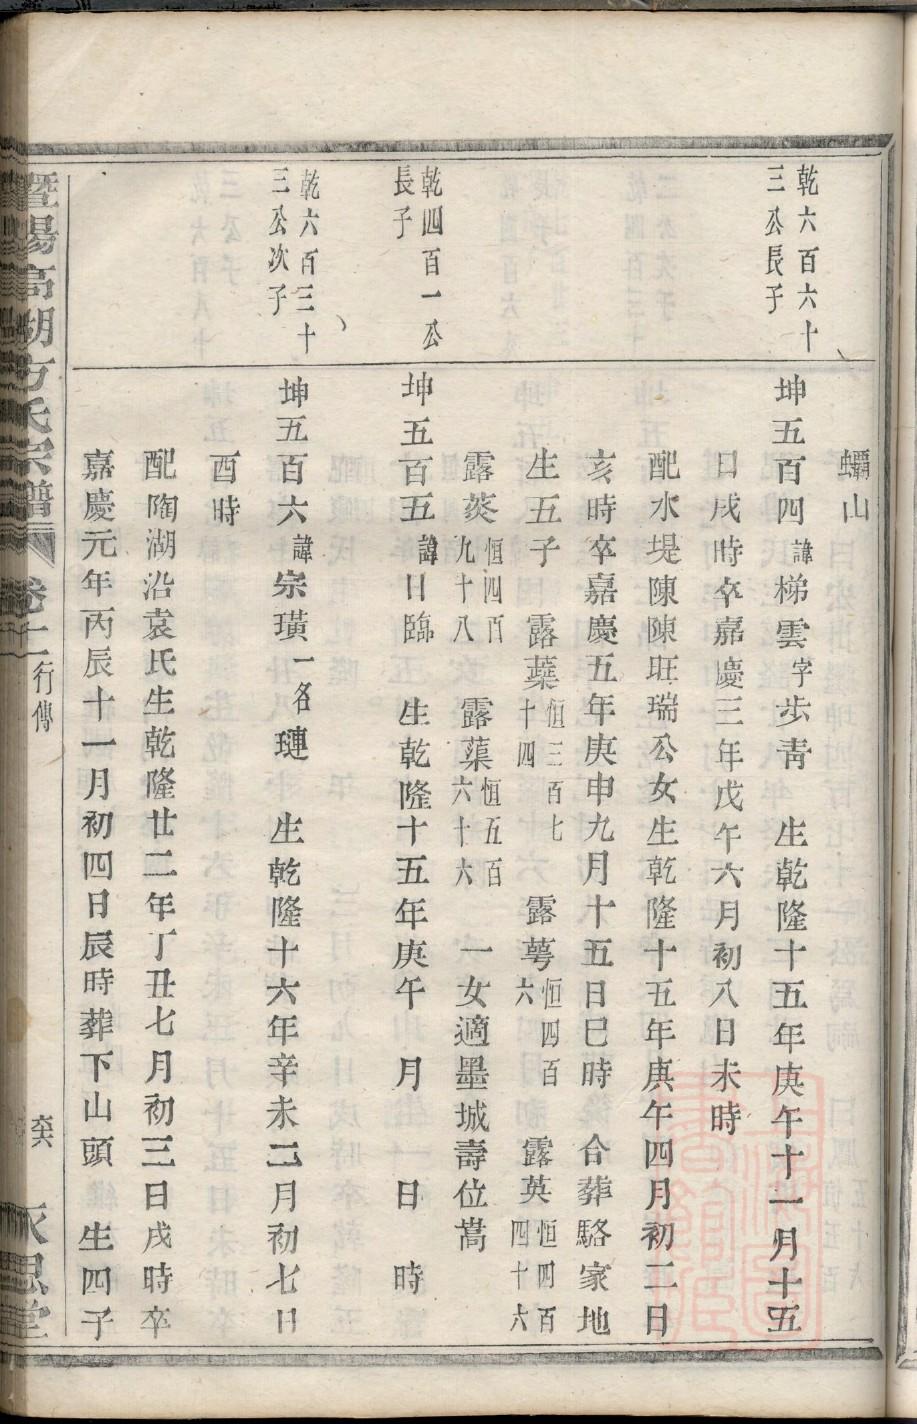 蠕山
乾六百六十
三公長子
坤五百四諱梯雲字步青 生乾隆十五年庚午十二月十五
日戌時卒嘉慶三年戊午六月初八日未時
配水堤陳陳旺瑞公女生乾隆十五年庚午四月初二日
亥時卒嘉慶五年庚申九月十五日巳時 合葬駱家地
生五子 露葉恒三百七十四 露萼恒四百六 露英恒四百四十六
露葵恒四百九十八 露蕖恒五百六十六 一女適墨城壽位嵩
乾四百一公
長子
坤五百五諱日臨 生乾隆十五年庚午 月 日 時
乾六百三十
三公次子
坤五百六諱宗璜一名璉 生乾隆十六年辛未二月初七日
酉時
配陶湖沿袁氏生乾隆廿二年丁丑七月初三日戌時卒
嘉慶元年丙辰十一月初四日辰時葬下山頭 生四子
暨陽高湖方氏宗譜 卷十 行傳 永思堂